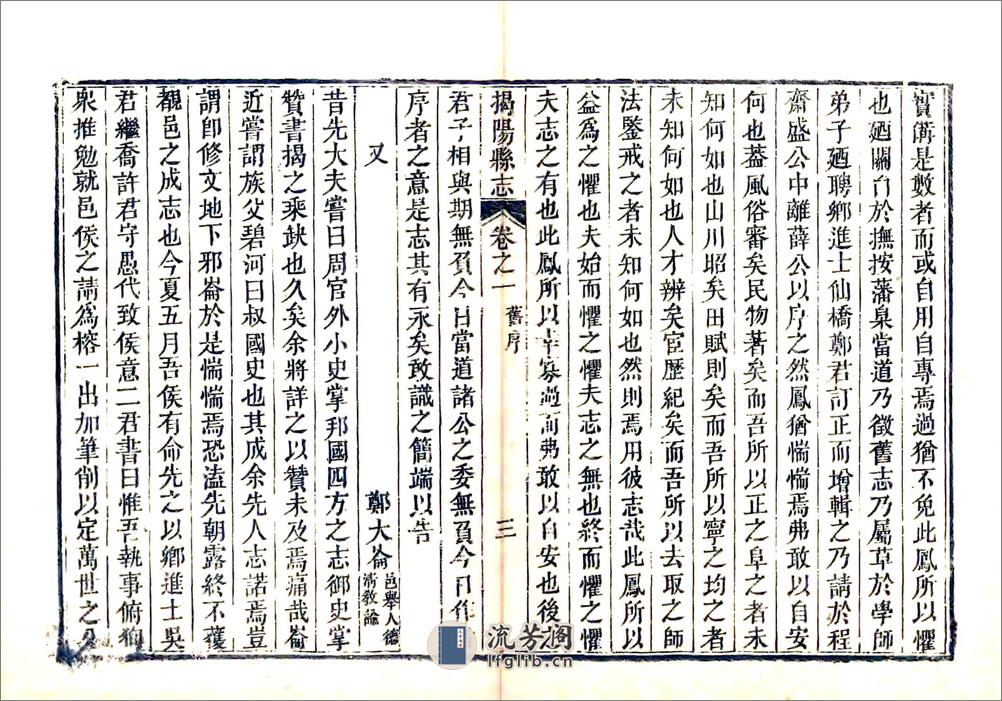 實蹐是數者而或自用自專焉過猶不免此鳳所以懼
也廼關白於撫按藩臬當道乃徵舊志乃屬草於學師
弟子廼聘鄉進士仙橋鄭君訂正而增輯之乃請於程
齋盛公中離薛公以序之然鳳猶惴惴焉弗敢以自安
何也蓋風俗審矣民物著矣而吾所以正之阜之者未
知何如也山川昭矣田賦則矣而吾所以寧之均之者
未知何如也人才辨矣宦歷紀矣而吾所以去取之師
法鑒戒之者未知何如也然則焉用彼志哉此鳳所以
益為之懼也夫始而懼之懼夫志之無也終而懼之懼
夫志之有也此鳳所以幸寡過而弗敢以自安也後之
揭陽縣志 卷之一 舊序 三
君子相與期無負今日當道諸公之委無負今日作
序者之意是志其有永矣敢識之簡端以告
又 鄭大崙 邑舉人德清教諭
昔先大夫嘗曰周官外小史掌邦國四方之志御史掌
贊書揭之乘缺也久矣余將詳之以贊未及焉痛哉崙
近嘗謂族父碧河曰叔國史也其成余先人志諾焉豈
謂卽修文地下邪崙於是惴惴焉恐溘先朝露終不獲
覩邑之成志也今夏五月吾侯有命先之以鄉進士吳
君繼喬許君守愚代致侯意二君書曰惟吾執事俯狥
衆推勉就邑侯之請為榕一出加筆削以定萬世之公
流芳閣
lfglib.cn